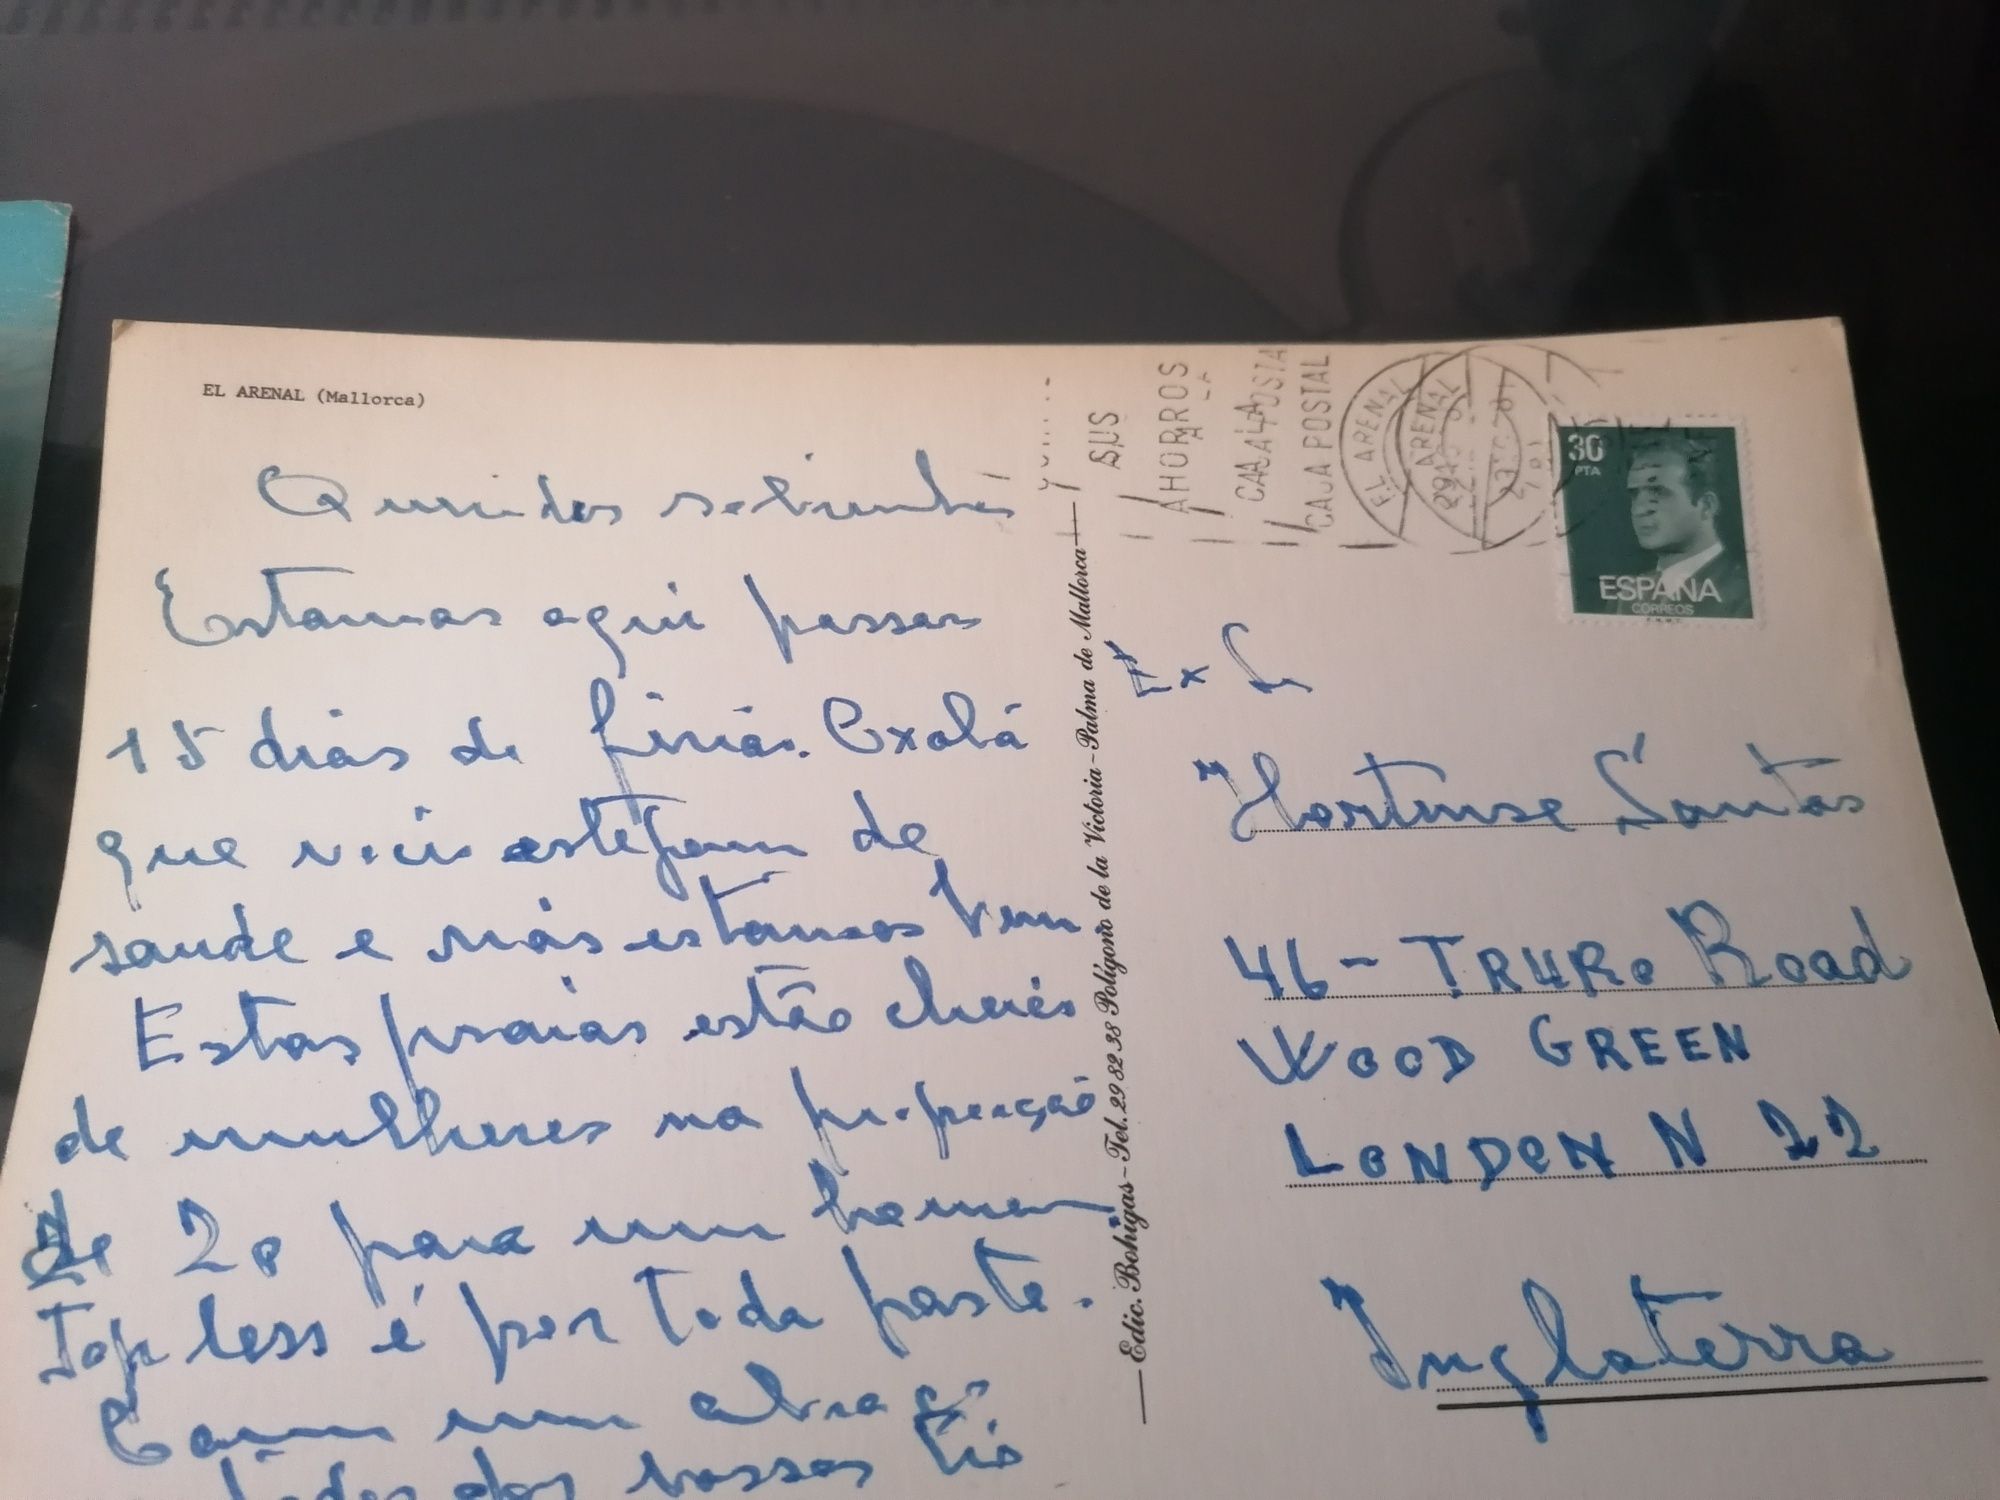 EL ARENAL (Mallorca)
Queridos sobrinhos
Estamos aqui passar
15 dias de férias. Oxalá
que vocês estejam de
saude e nós estamos bem.
Estas praias estão cheiás
de mulheres na proporção
de 20 para um homem.
Top less é por toda parte.
Com um abraço
todos dos vossos tio
Edic. Bohigas - Tel. 29 82 38 Polígono de la Victoria - Palma de Mallorca
SUS
AHORROS
A LA
CAJA POSTAL
CAJA POSTAL
EL ARENAL
ARENAL
30
PTA
ESPAÑA
CORREOS
F.N.M.T.
Ex
Hortense Santos
46 - TRURO Road
WOOD GREEN
LONDON N 22
Inglaterra